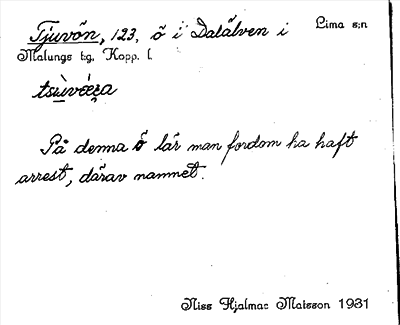 Tjuvön, 123, ö i Dalälven i Lima s:n
Malungs tg, Kopp. l.
På denna ö lär man fordom ha haft
arrest, därav namnet.
Niss Hjalmar Matsson 1931